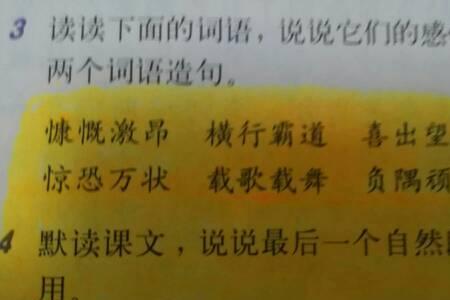 3 读读下面的词语，说说它们的感
两个词语造句。
慷慨激昂 横行霸道 喜出望
惊恐万状 载歌载舞 负隅顽
4 默读课文，说说最后一个自然
用。